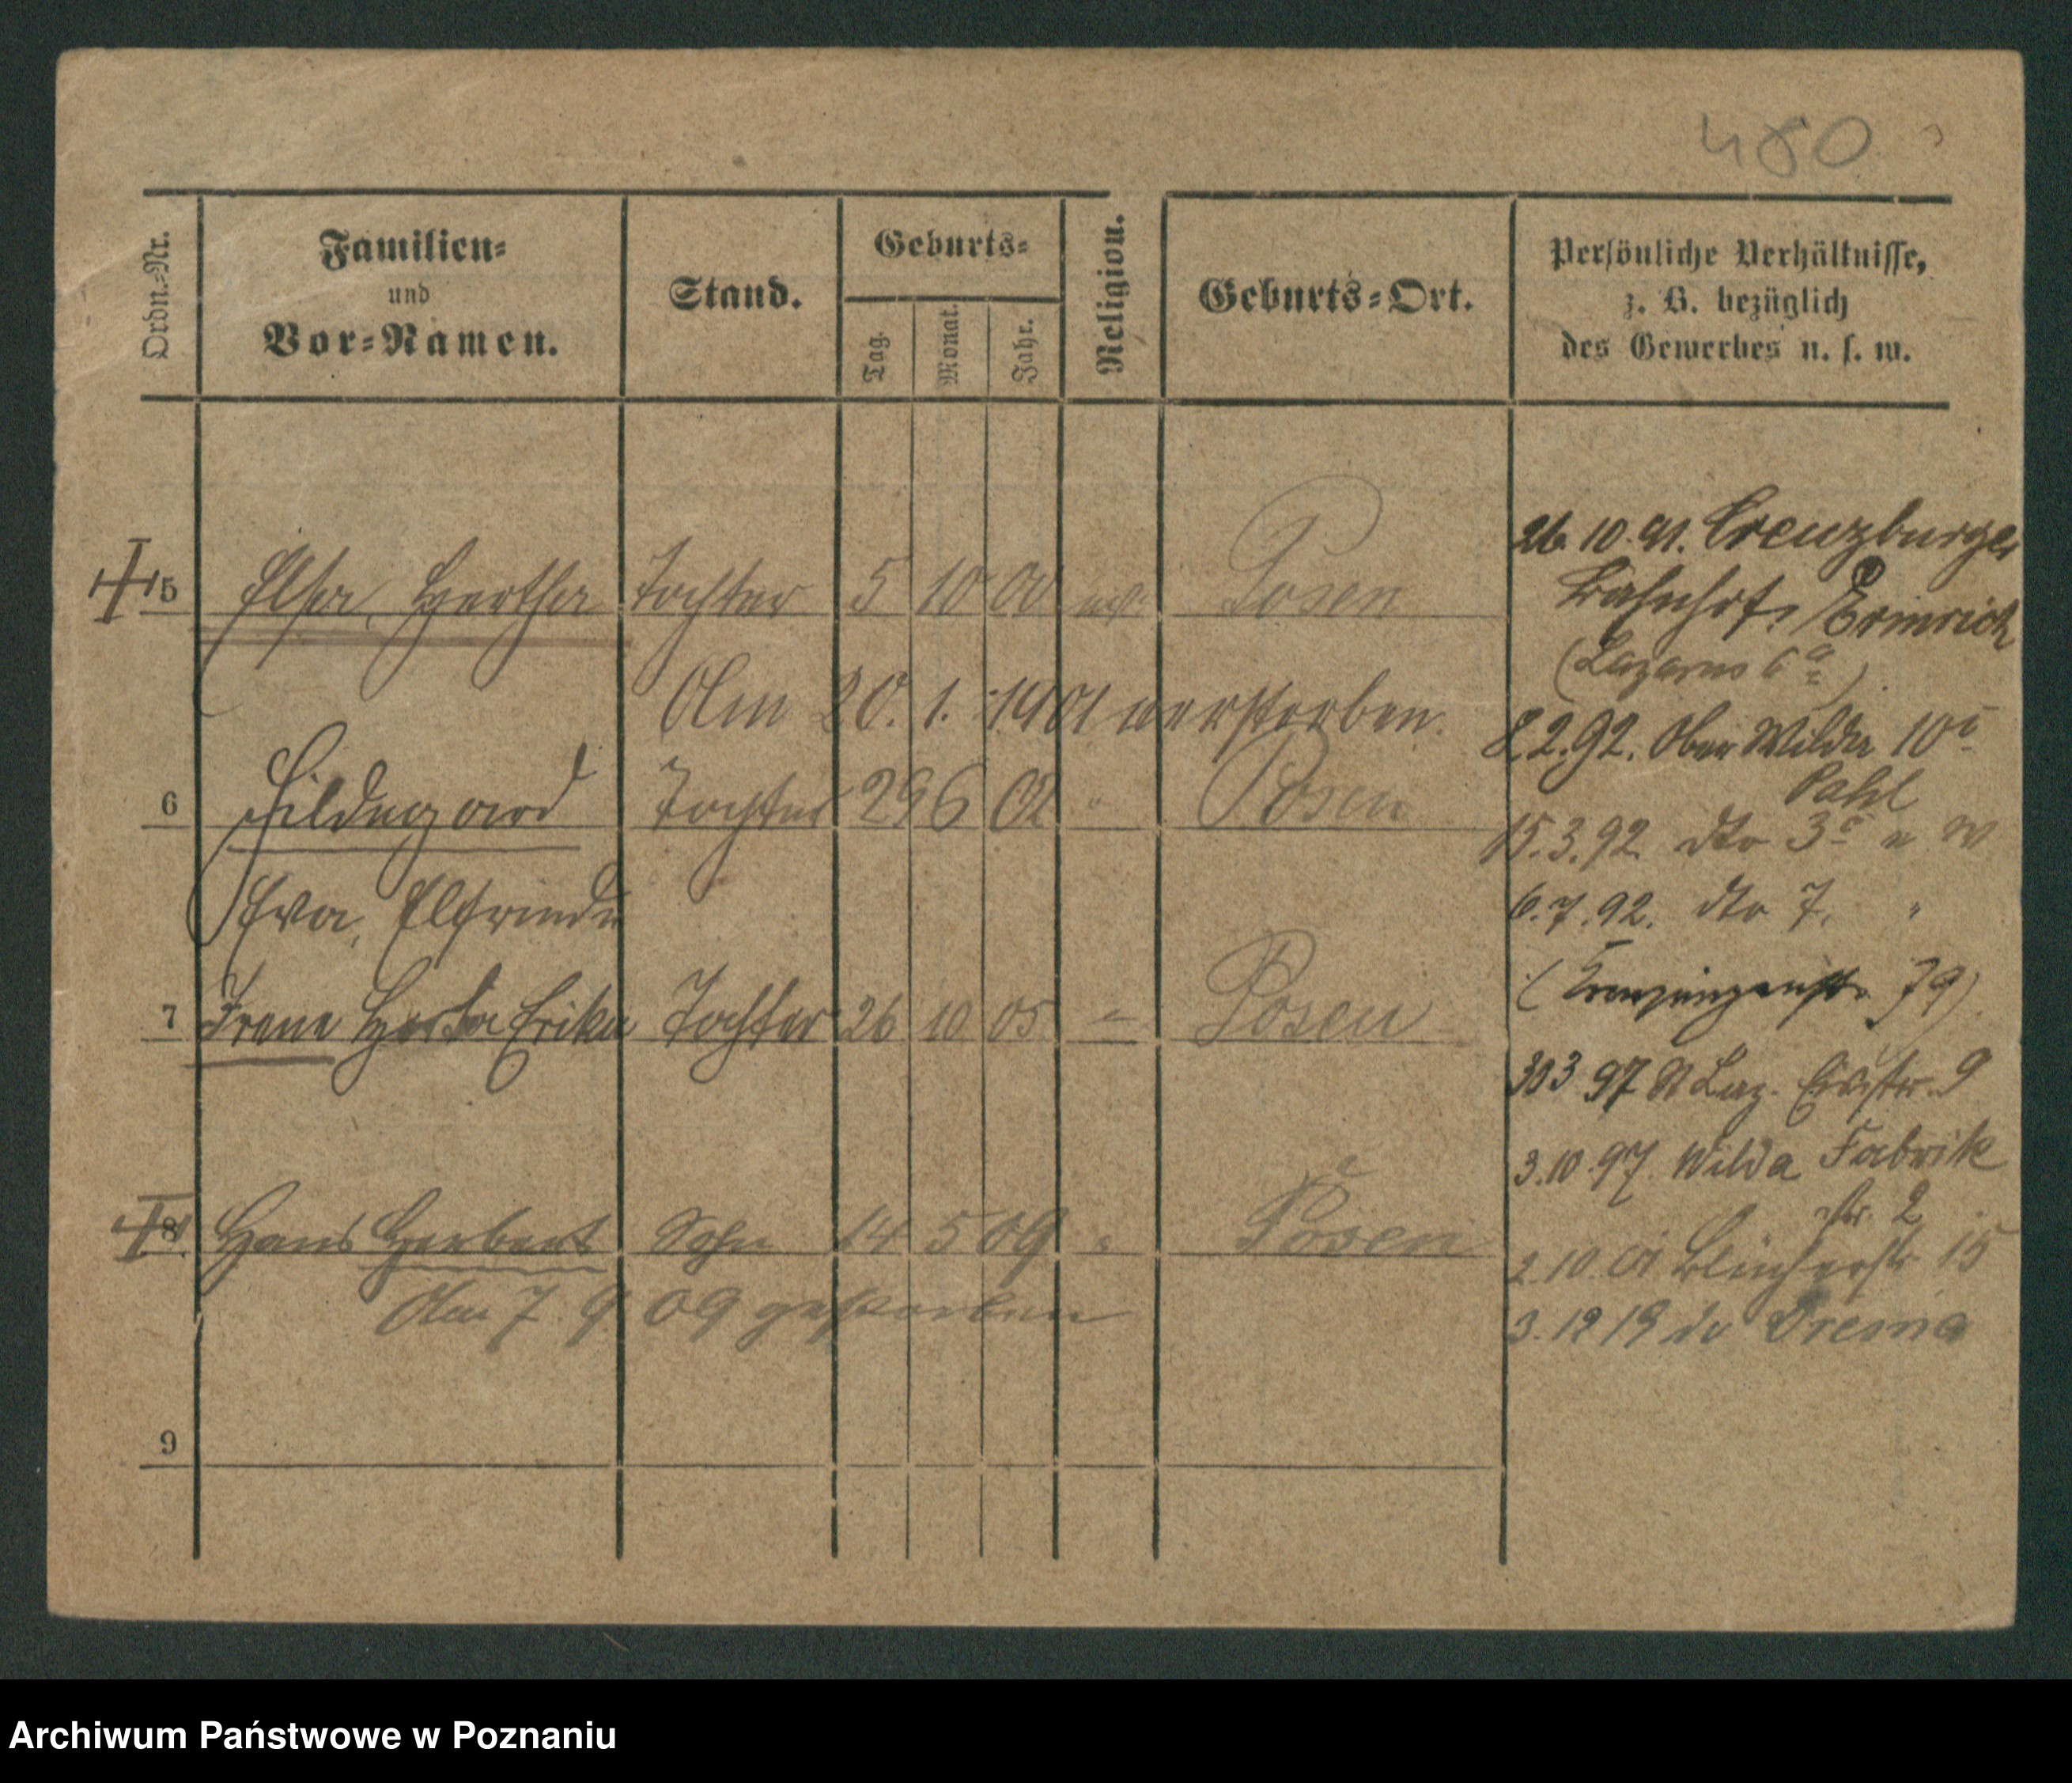 480
Ordn.-Nr.
Familien-
und
Vor-Namen.
Stand.
Geburts-
Tag.
Monat.
Jahr.
Religion.
Geburts-Ort.
Persönliche Verhältnisse,
z. B. bezüglich
des Gewerbes u. s. w.
5 Elsa, Hertha Tochter 5 10 00 ev. Posen
Am 20. 1. 1901 verstorben.
6 Hildegard Tochter 29 6 02 " Posen
Eva, Elfriede
7 Irene Herta Erika Tochter 26 10 05 " Posen
8 Hans Herbert Sohn 14 5 09 " Posen
Am 7. 9. 09 gestorben
9
26. 10. 91. Creuzburger
Bahnhof,
(Lazarus 6a)
8. 2. 92. Ober Wilda 10
Pahl
15. 3. 92. dto 3
6. 7. 92. dto 7. "
79)
30 3 97 St Laz. 9
3. 10. 97. Wilda Fabrik
str. 2
2. 10. 01 Blücherstr 15
3. 12 19